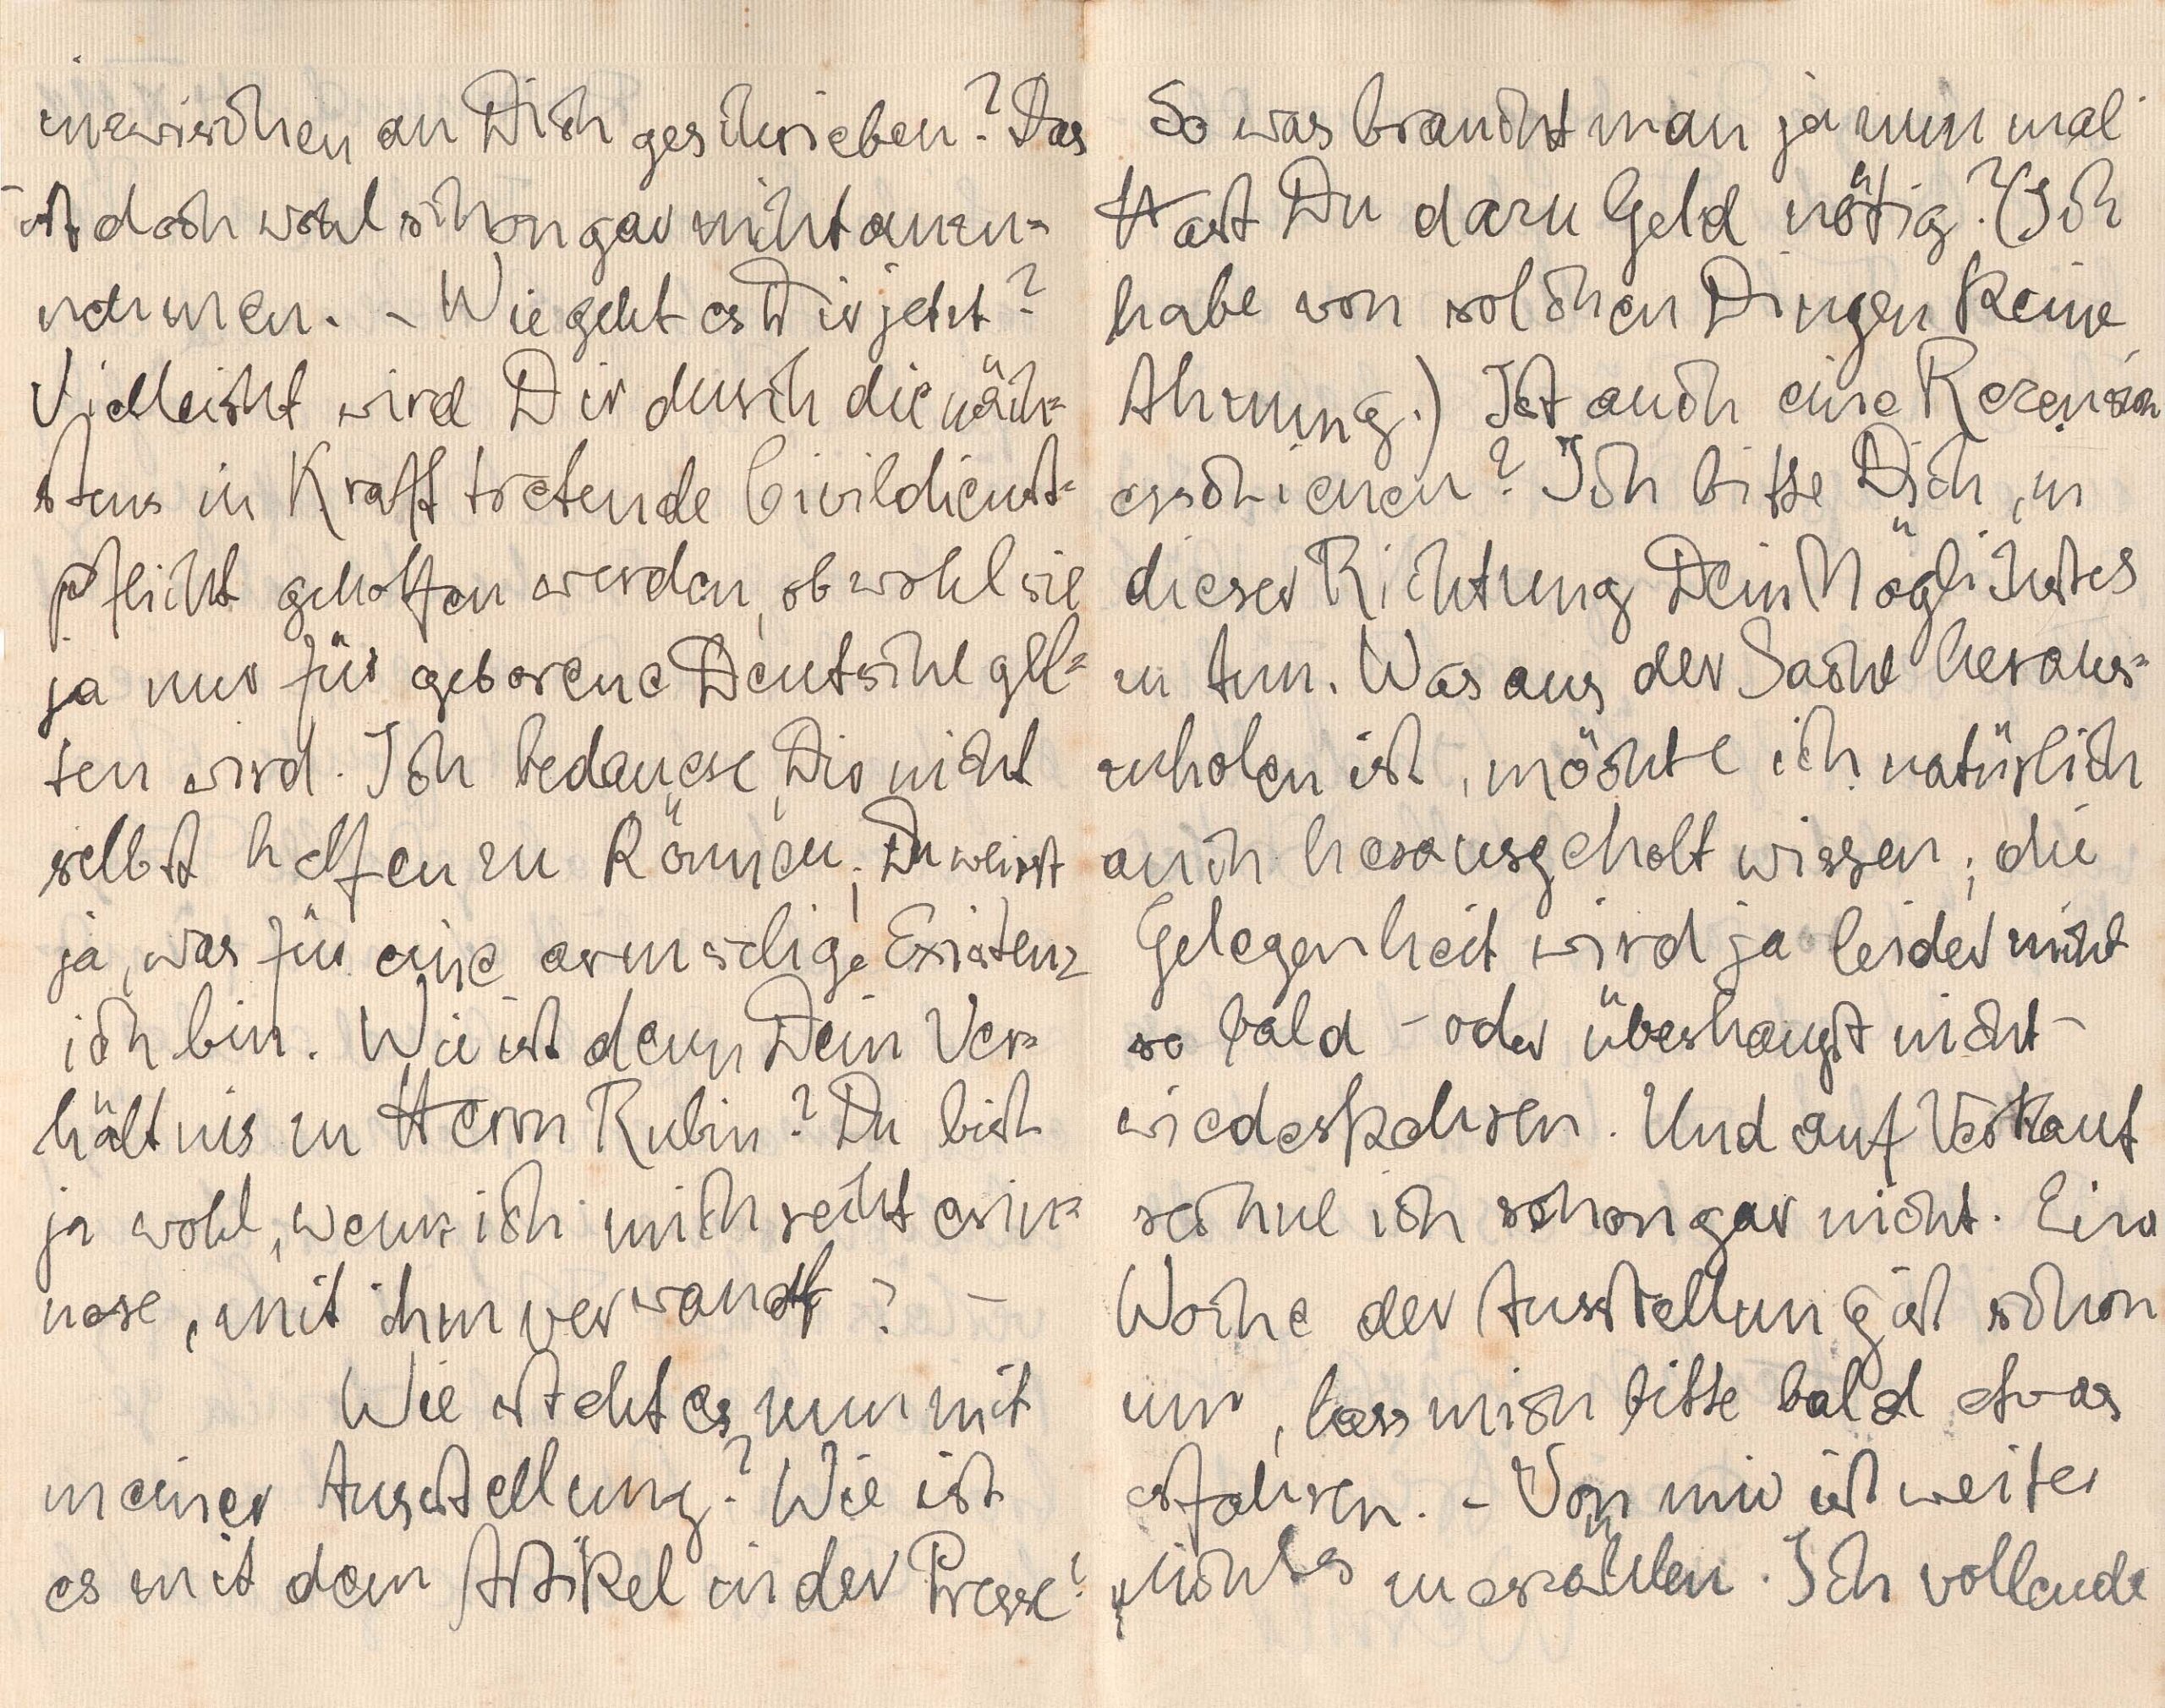 inzwischen an Dich geschrieben? Das
ist doch wohl schon gar nicht anzu=
nehmen. - Wie geht es Dir jetzt?
Vielleicht wird Dir durch die näch=
stens in Kraft tretende Civildienst=
pflicht geholfen werden, obwohl sie
ja nur für geborene Deutsche gel=
ten wird. Ich bedauere, Dir nicht
selbst helfen zu können; Du weisst
ja, was für eine armselige Existenz
ich bin. Wie ist denn Dein Ver=
hältnis zu Herrn Rubin? Du bist
ja wohl, wenn ich mich recht erin=
nere, mit ihm verwandt? -
Wie steht es nun mit
meiner Ausstellung? Wie ist
es mit dem Artikel in der Presse?
So was braucht man ja nun mal
Hast Du dazu Geld nötig? (Ich
habe von solchen Dingen keine
Ahnung.) Ist auch eine Rezension
erschienen? Ich bitte Dich, in
dieser Richtung Dein Möglichstes
zu tun. Was aus der Sache heraus=
zuholen ist, möchte ich natürlich
auch herausgeholt wissen; die
Gelegenheit wird ja leider nicht
so bald - oder überhaupt nicht -
wiederkehren. Und auf Verkauf
rechne ich schon gar nicht. Eine
Woche der Ausstellung ist schon
um, lass mich bitte bald etwas
erfahren. - Von mir ist weiter
nichts zu erzählen. Ich vollende